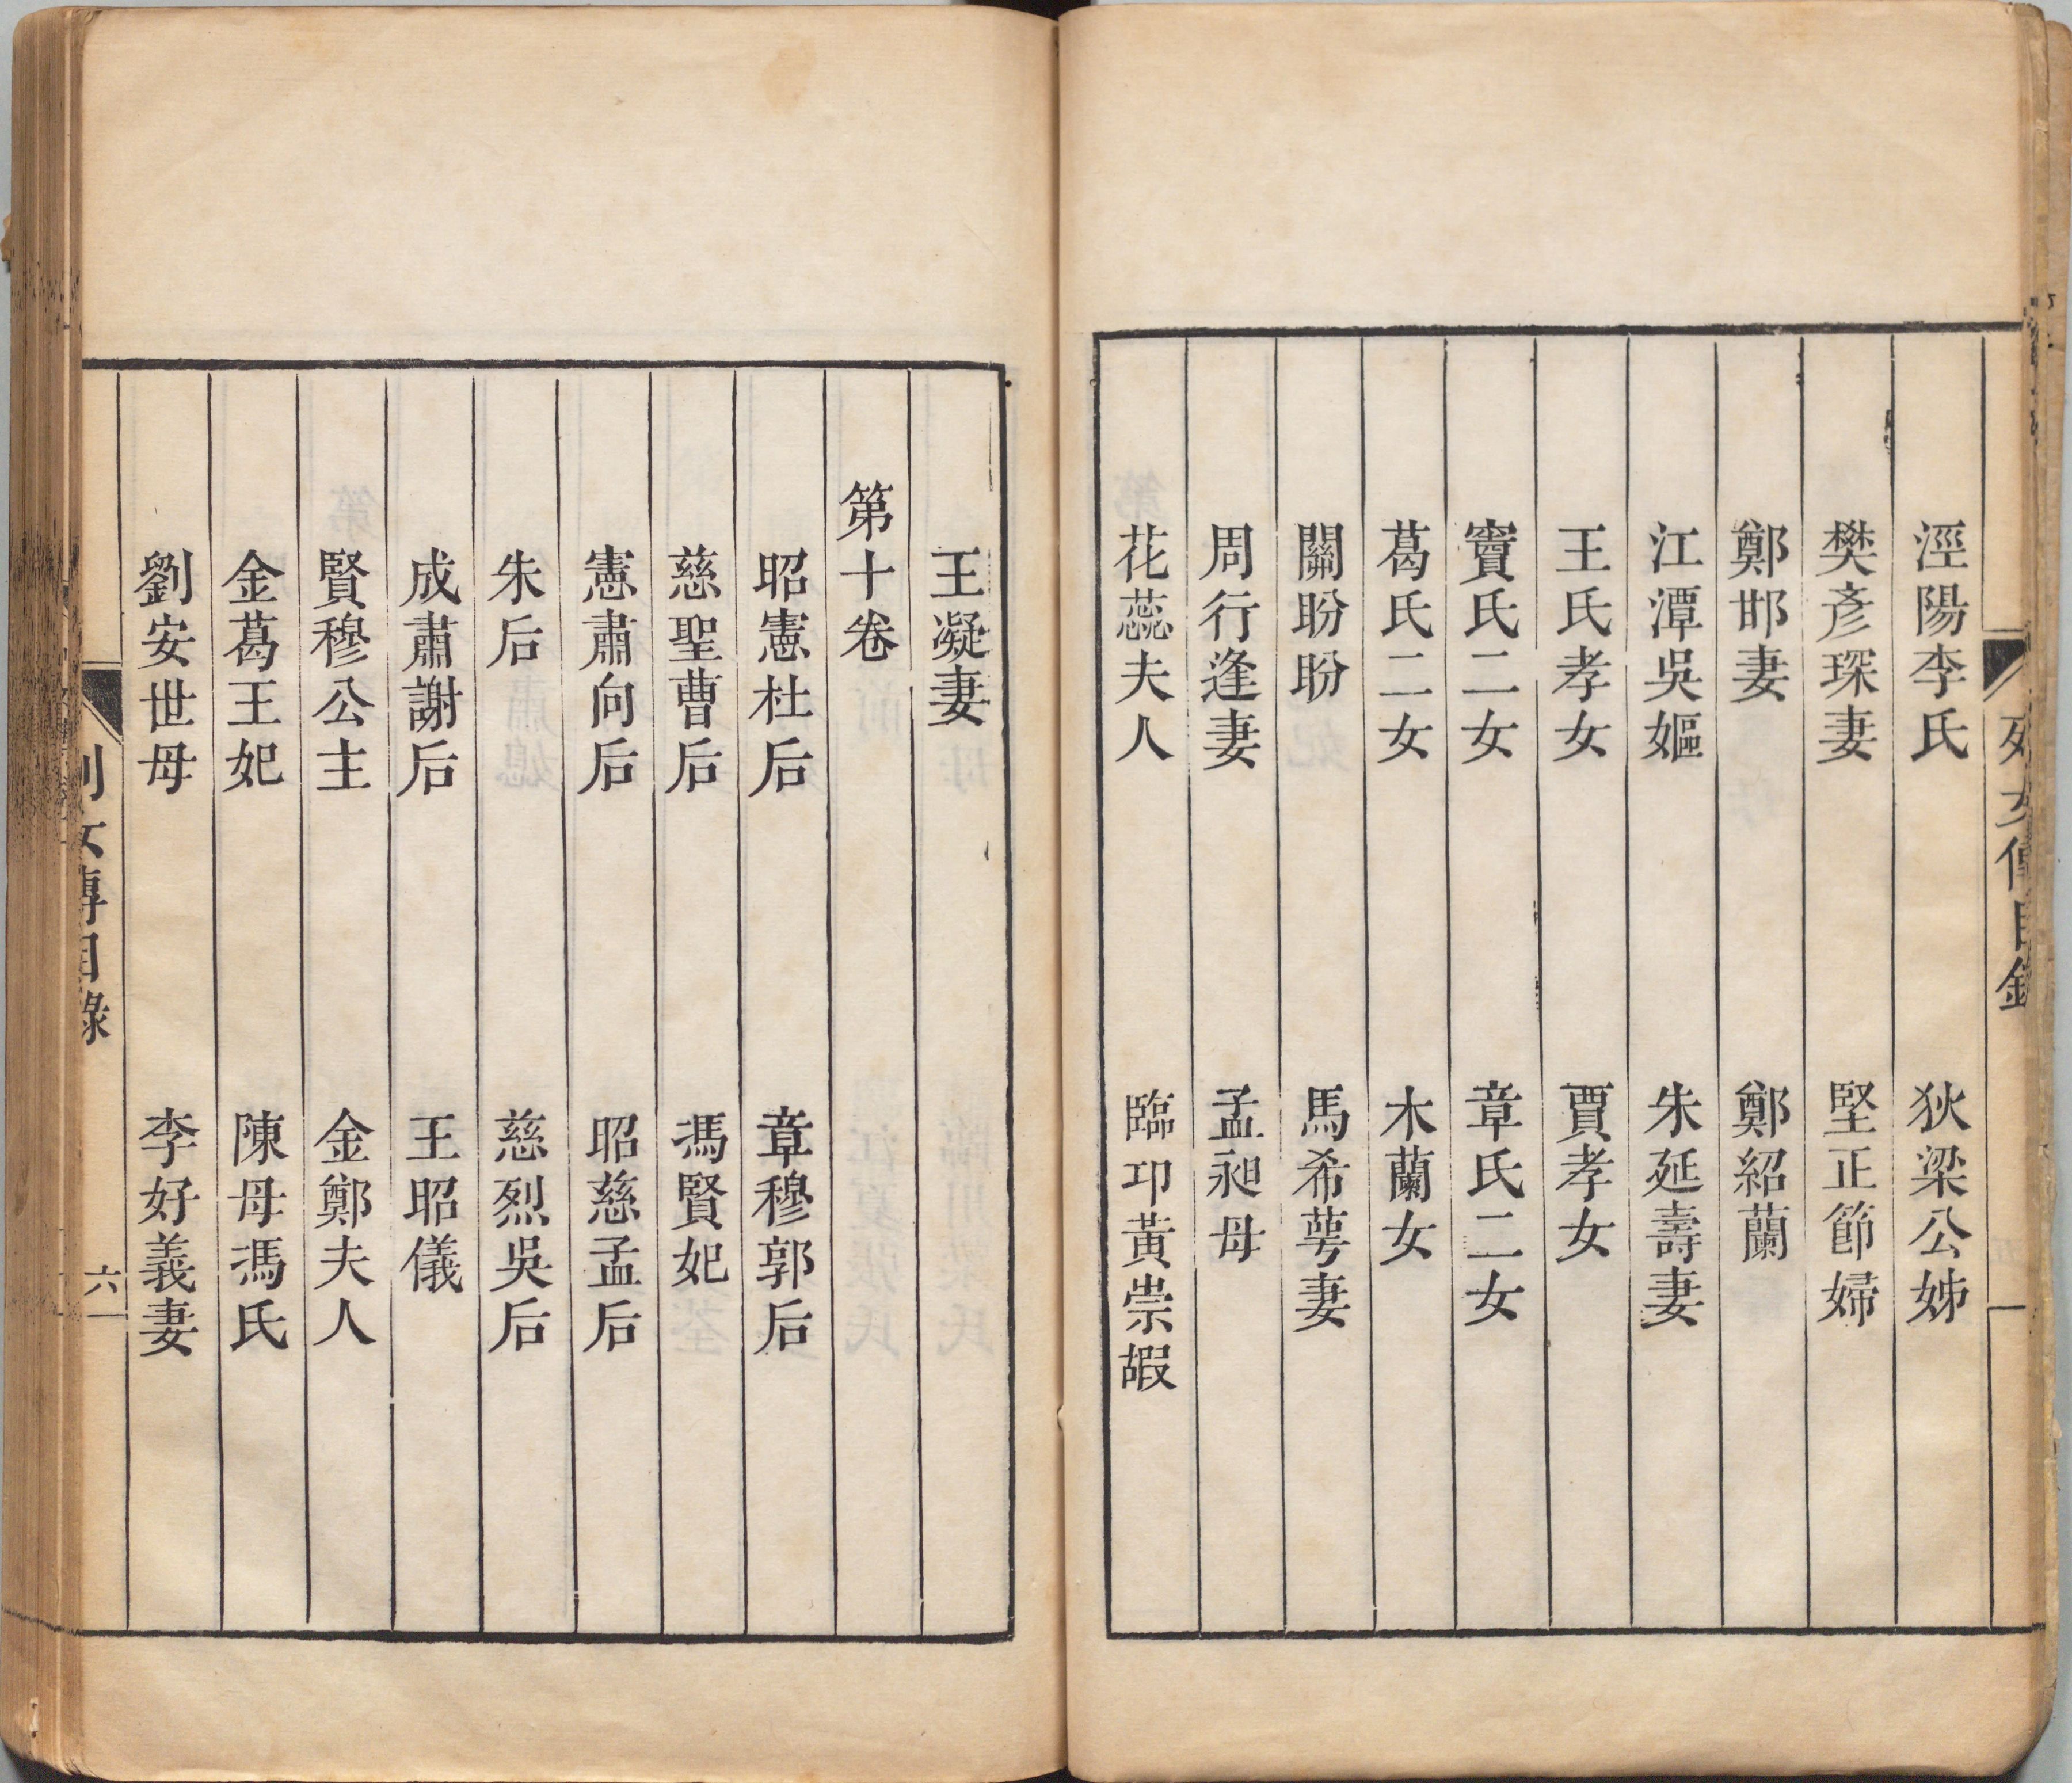 列女傳目錄
涇陽李氏　狄梁公姊
樊彥琛妻　堅正節婦
鄭邯妻　鄭紹蘭
江潭吳嫗　朱延壽妻
王氏孝女　賈孝女
竇氏二女　章氏二女
葛氏二女　木蘭女
關盼盼　馬希萼妻
周行逢妻　孟昶母
花蕊夫人　臨卭黃崇嘏
王凝妻
第十卷
昭憲杜后　章穆郭后
慈聖曹后　馮賢妃
憲肅向后　昭慈孟后
朱后　慈烈吳后
成肅謝后　王昭儀
賢穆公主　金鄭夫人
金葛王妃　陳母馮氏
劉安世母　李好義妻
列女傳目錄　六